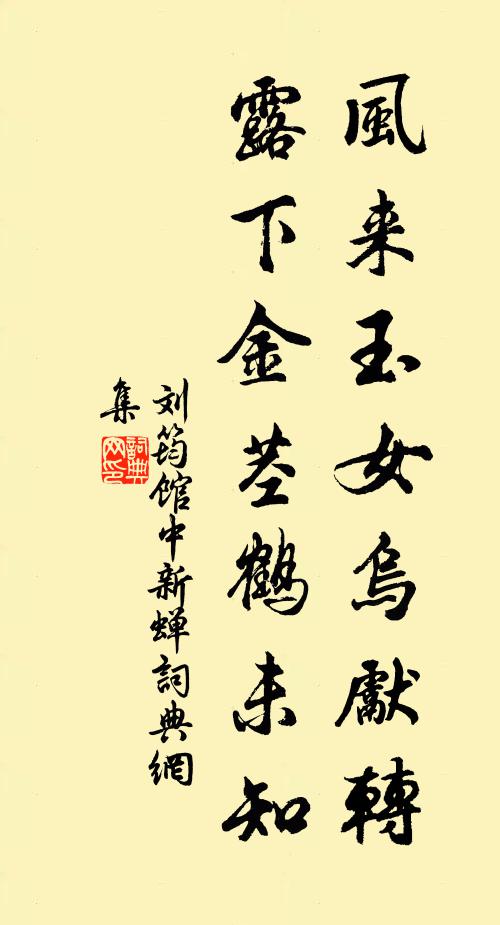 風来玉女烏獻轉
露下金茎鶴未知
刘筠馆中新蝉詞典網
集
詞典网印